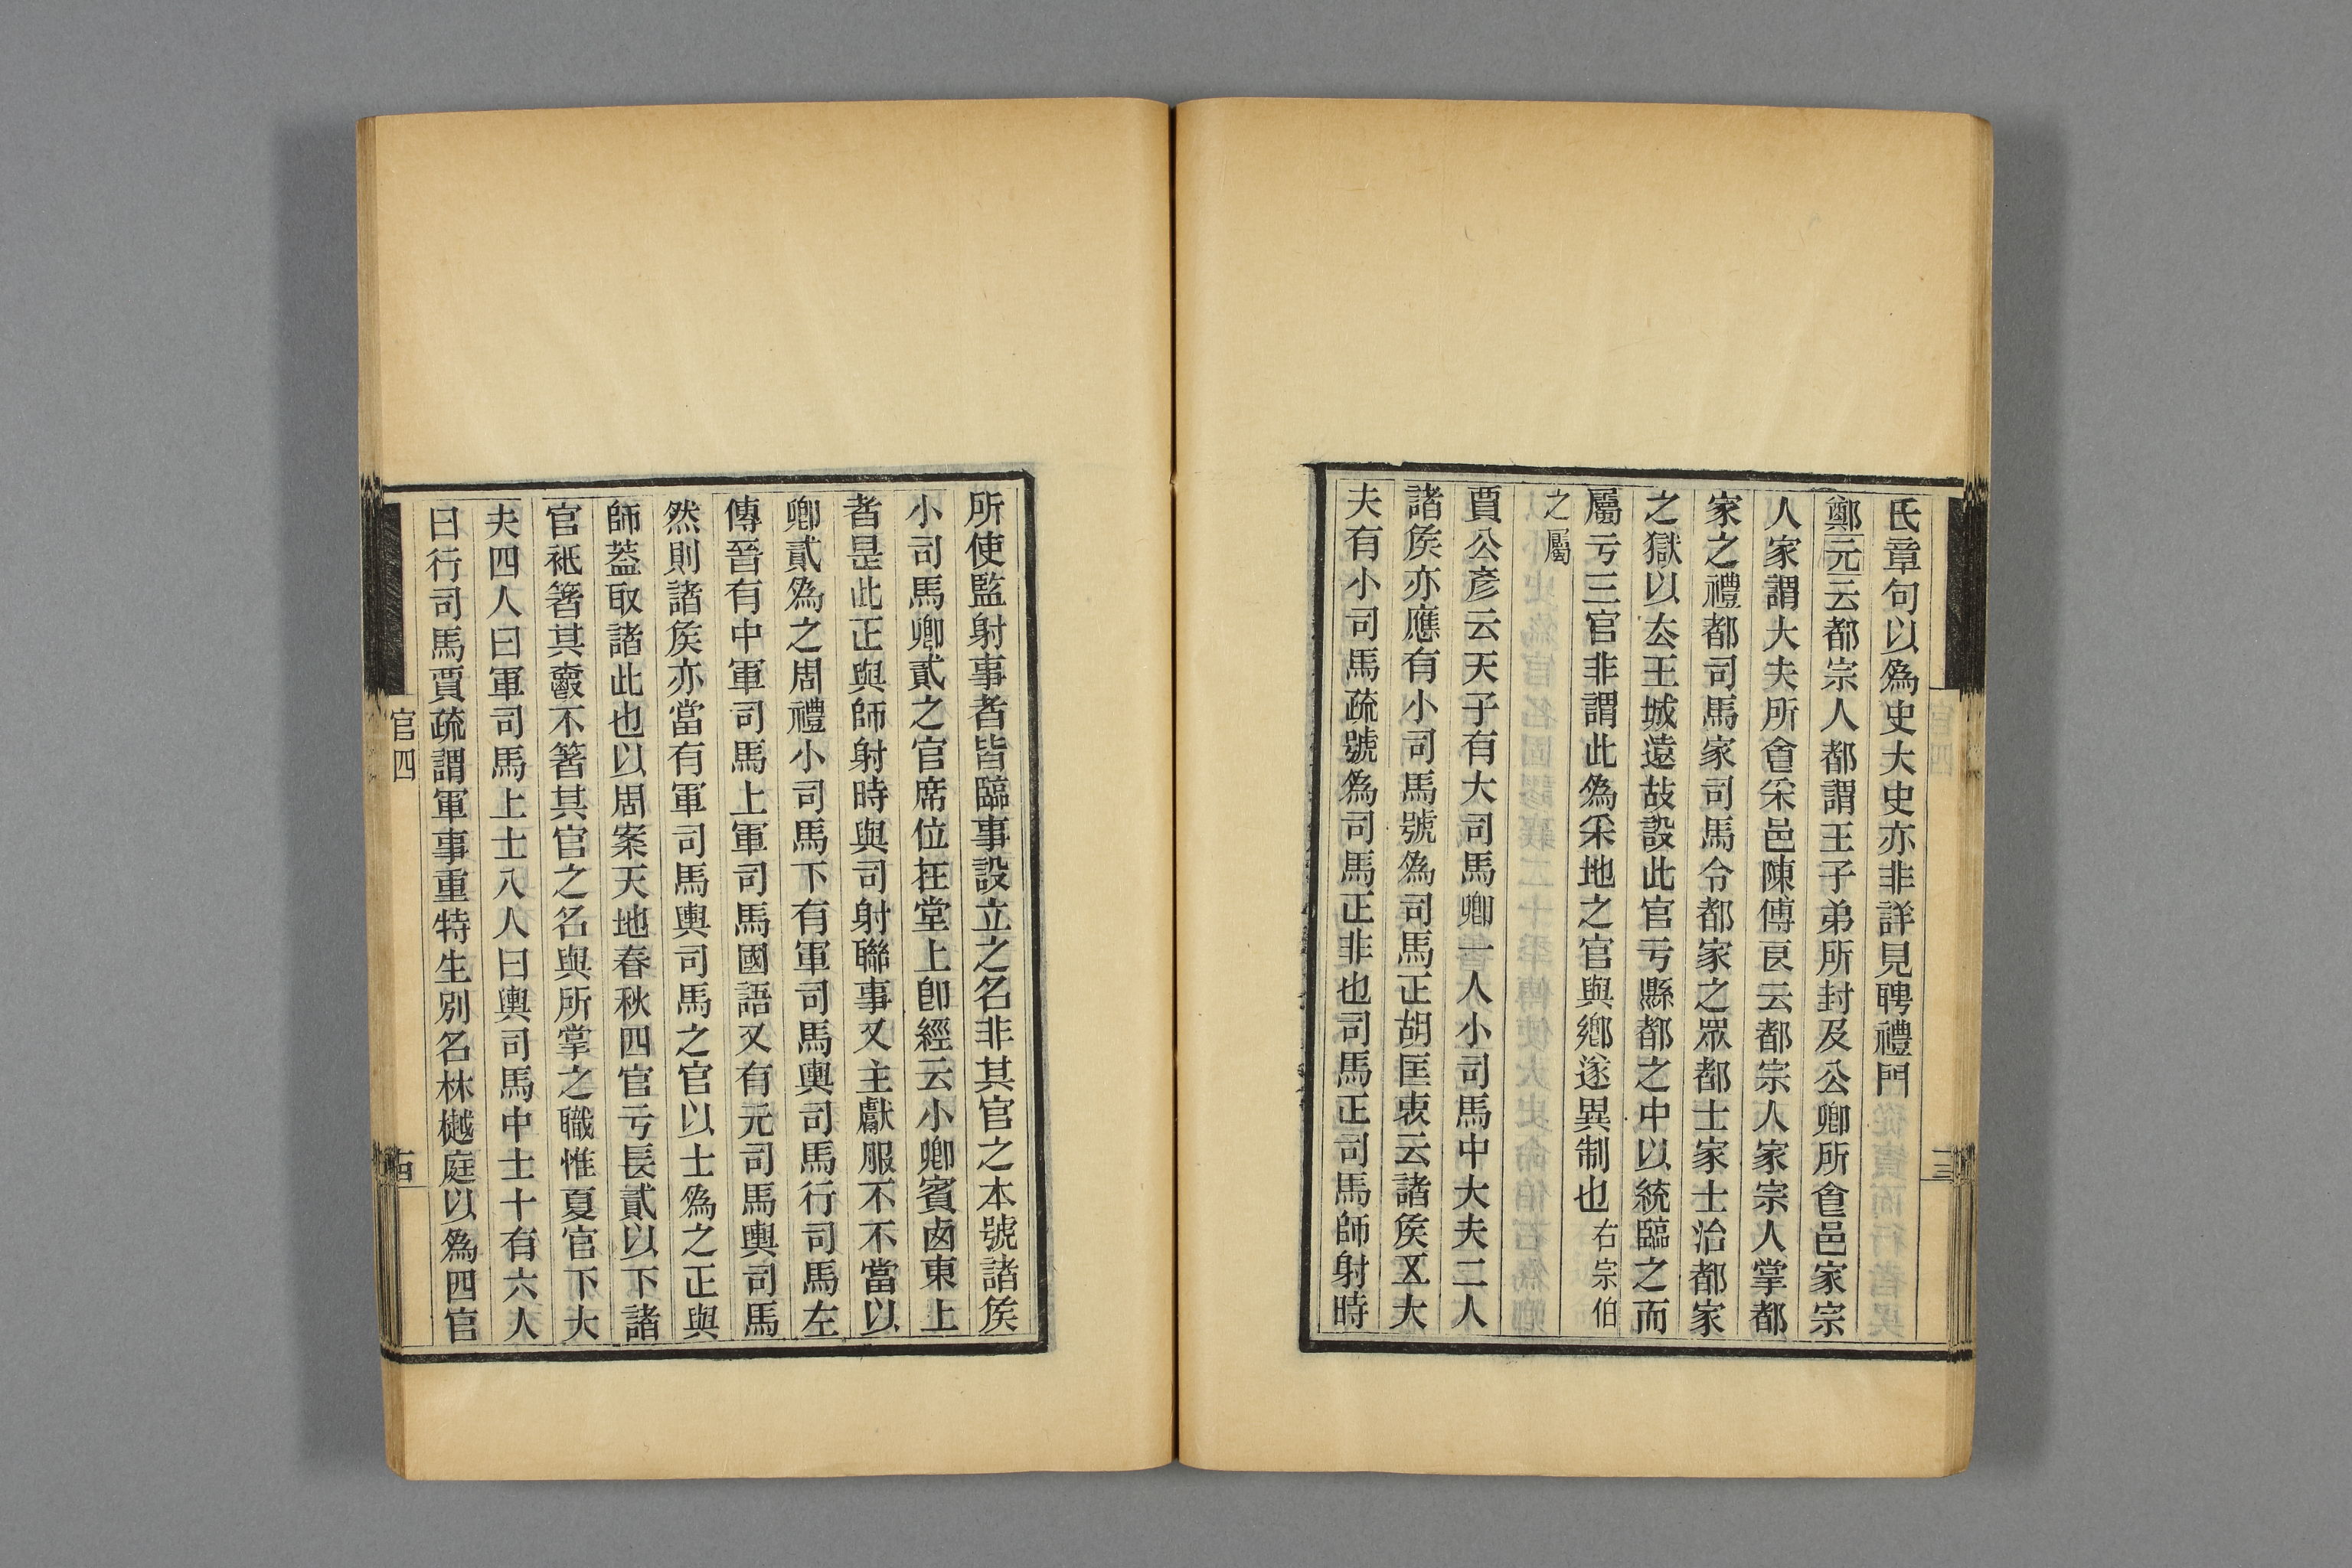 氏章句以爲史大史亦非詳見聘禮門
鄭元云都宗人都謂王子弟所封及公卿所食邑家宗
人家謂大夫所食采邑陳傅良云都宗人家宗人掌都
家之禮都司馬家司馬令都家之眾都士家士治都家
之獄以去王城遠故設此官亏縣都之中以統臨之而
屬亏三官非謂此爲采地之官與鄉遂異制也右宗伯
之屬
賈公彥云天子有大司馬卿一人小司馬中大夫二人
諸矦亦應有小司馬號爲司馬正胡匡衷云諸矦五大
夫有小司馬疏號爲司馬正非也司馬正司馬師射時
所使監射事者皆臨事設立之名非其官之本號諸矦
小司馬卿貳之官席位在堂上卽經云小卿賓卥東上
者是此正與師射時與司射聯事又主獻服不不當以
卿貳爲之周禮小司馬下有軍司馬輿司馬行司馬左
傳晉有中軍司馬上軍司馬國語又有元司馬輿司馬
然則諸矦亦當有軍司馬輿司馬之官以士爲之正與
師蓋取諸此也以周案天地春秋四官亏長貳以下諸
官袛箸其爵不箸其官之名與所掌之職惟夏官下大
夫四人曰軍司馬上士八人曰輿司馬中士十有六人
曰行司馬賈疏謂軍事重特生別名林樾庭以爲四官
官四